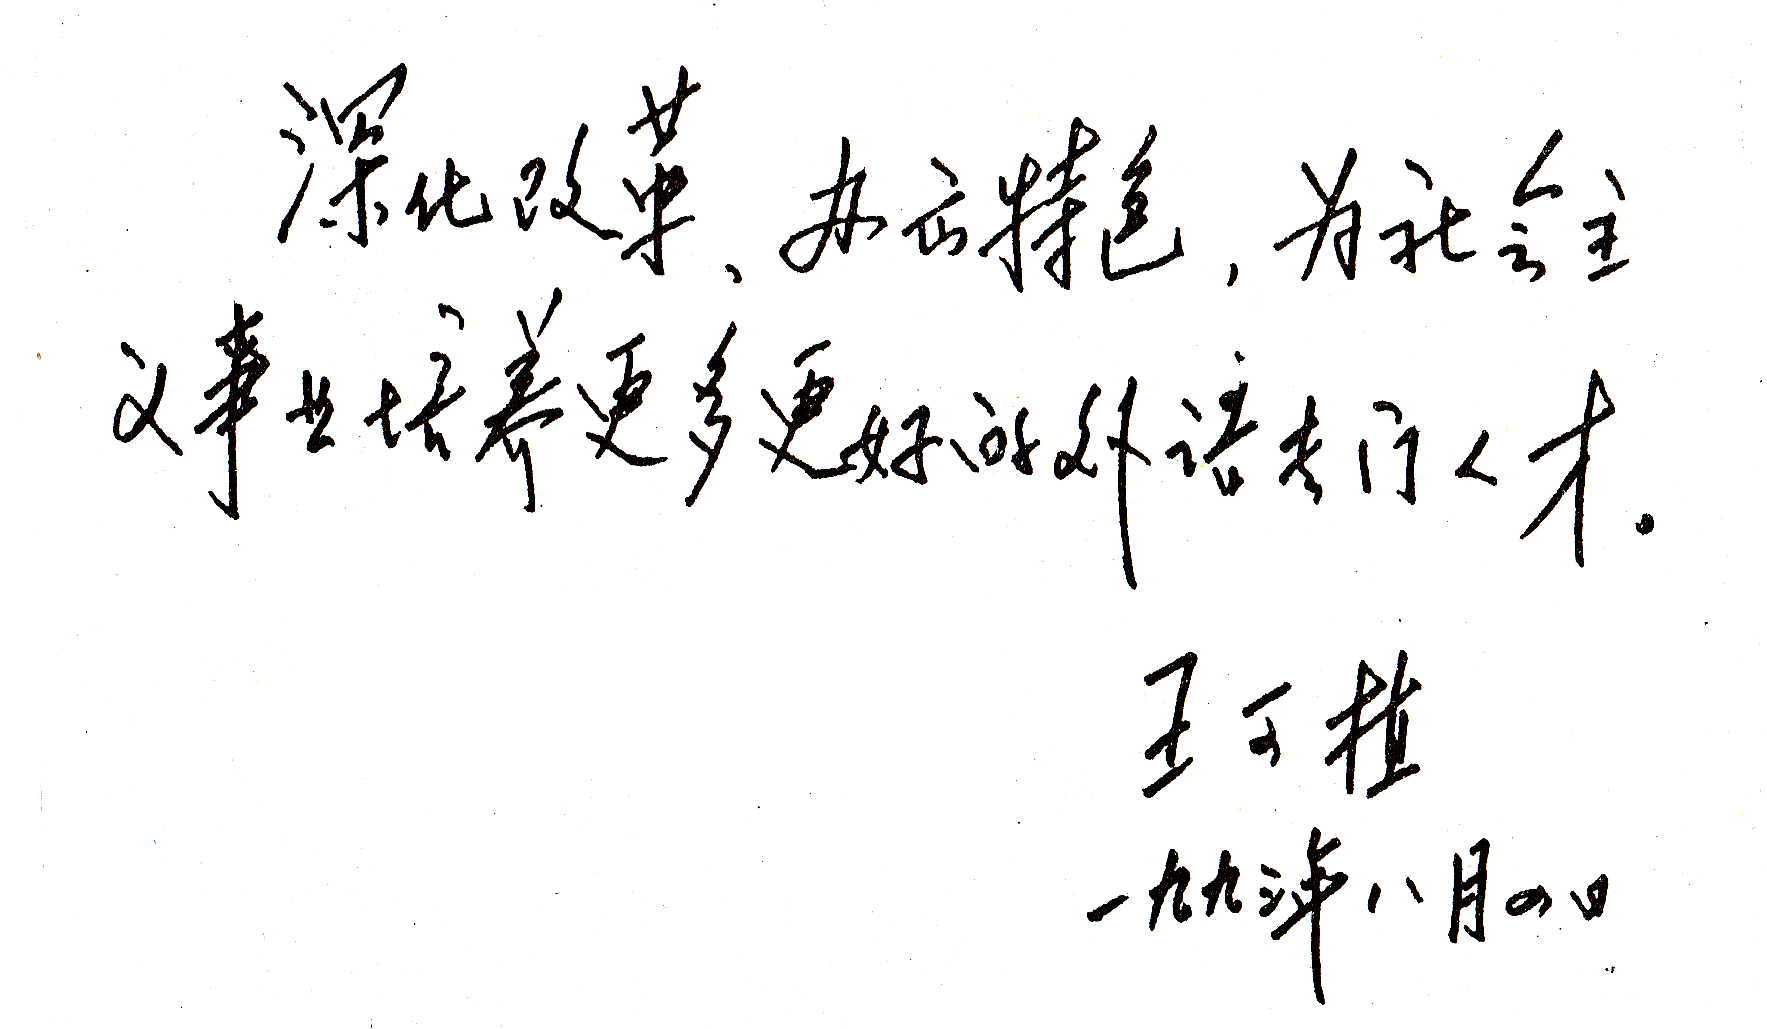 深化改革、办出特色，为社会主
义事业培养更多更好的外语专门人才。
王可植
一九九三年八月四日